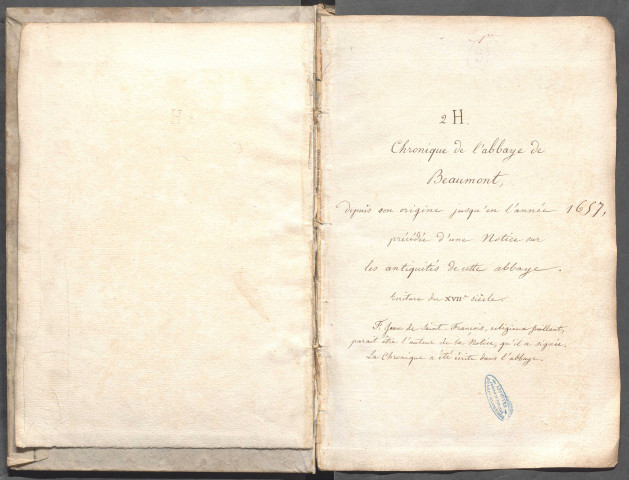 2 H.
Chronique de l'abbaye de
Beaumont,
depuis son origine jusqu'en l'année 1657,
précédée d'une Notice sur
les antiquités de cette abbaye.
Ecriture du XVIIe siècle.
F. Jean de Saint François, religieux feuillant,
parait être l'auteur de la Notice, qu'il a signée.
La Chronique a été écrite dans l'abbaye.